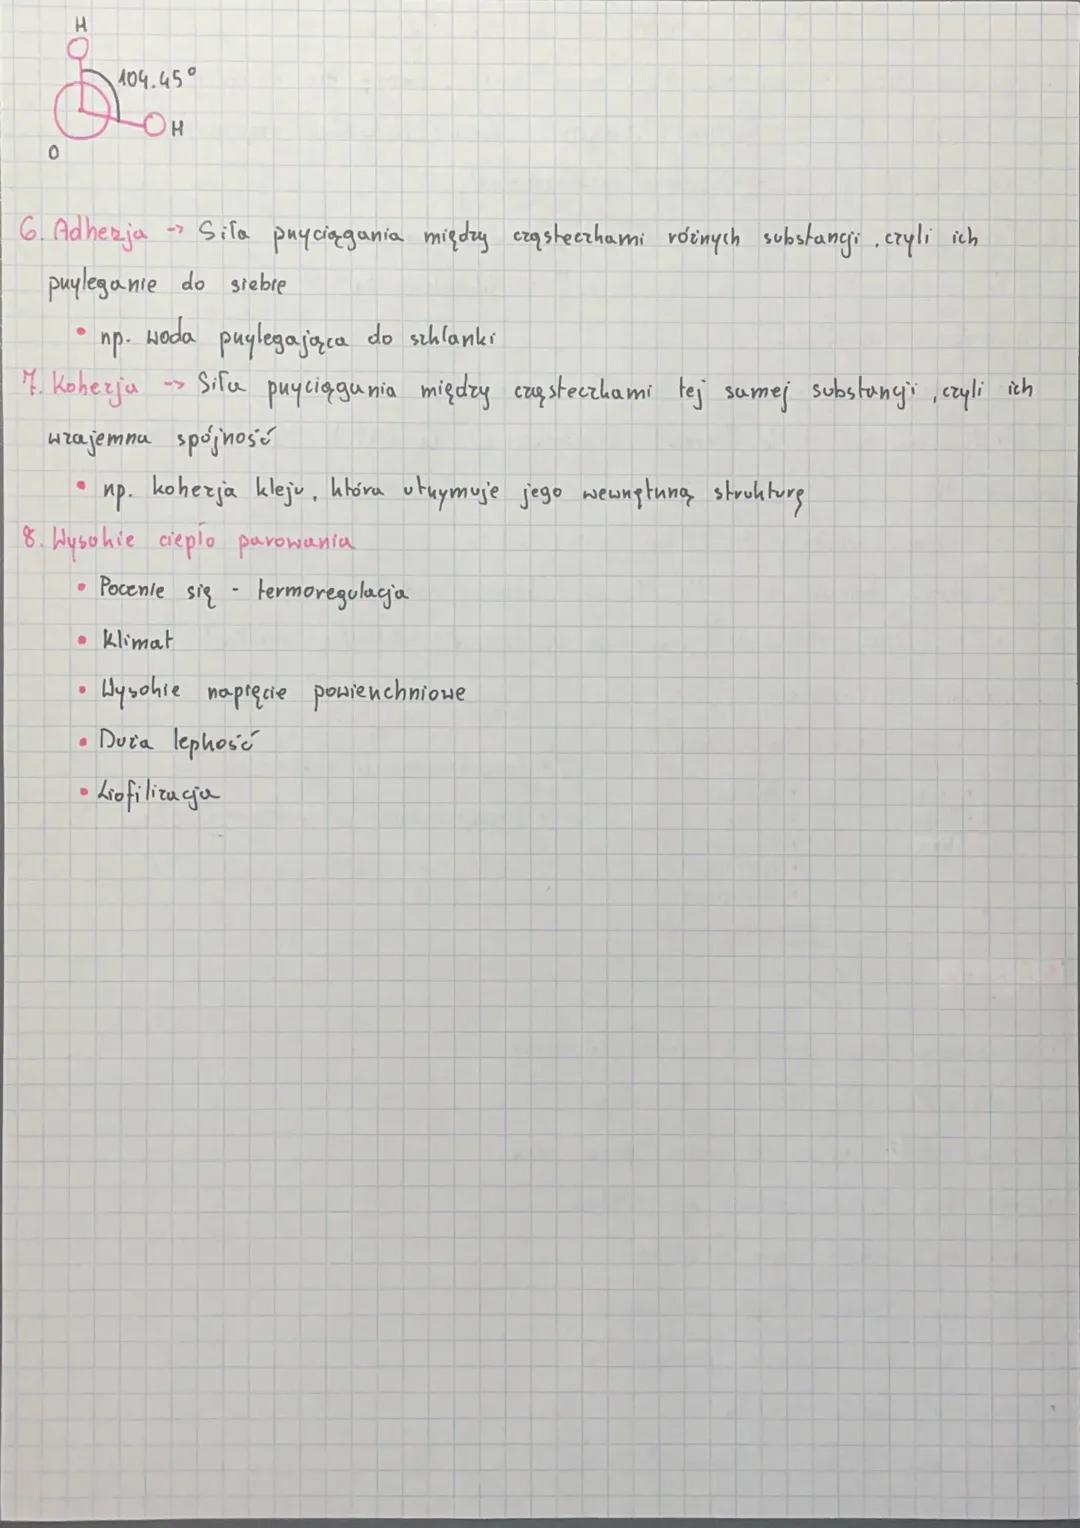 H
104.45°
H
O
6. Adhezja -> Siła przyciągania między cząsteczkami różnych substancji, czyli ich
przyleganie do siebie
• np. woda przylegająca do szklanki
7. Kohezja -> Siła przyciągania między cząsteczkami tej samej substancji, czyli ich
wzajemna spójność
• np. kohezja kleju, która utrzymuje jego wewnętrzną strukturę
8. Wysokie ciepło parowania
• Pocenie się - termoregulacja
• Klimat
• Wysokie napięcie powierzchniowe
• Duża lepkość
• Liofilizacja